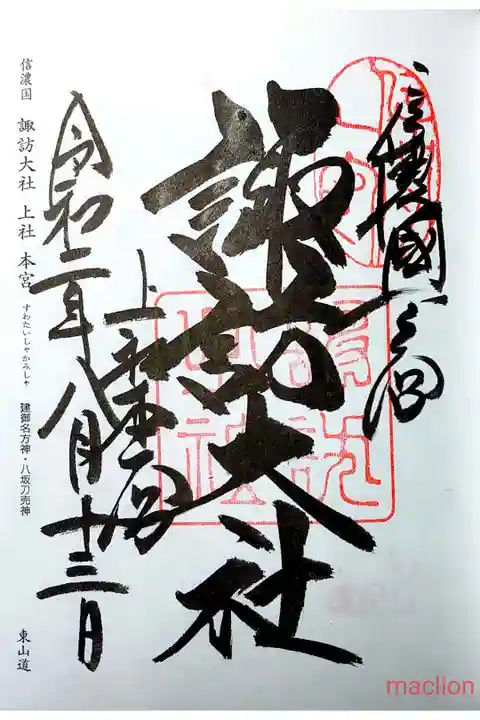 信濃國一之宮
諏訪大社
上社本宮
令和二年八月十三日
信濃国 諏訪大社 上社 本宮 すわたいしゃかみしゃ 建御名方神・八坂刀売神 東山道
maclion